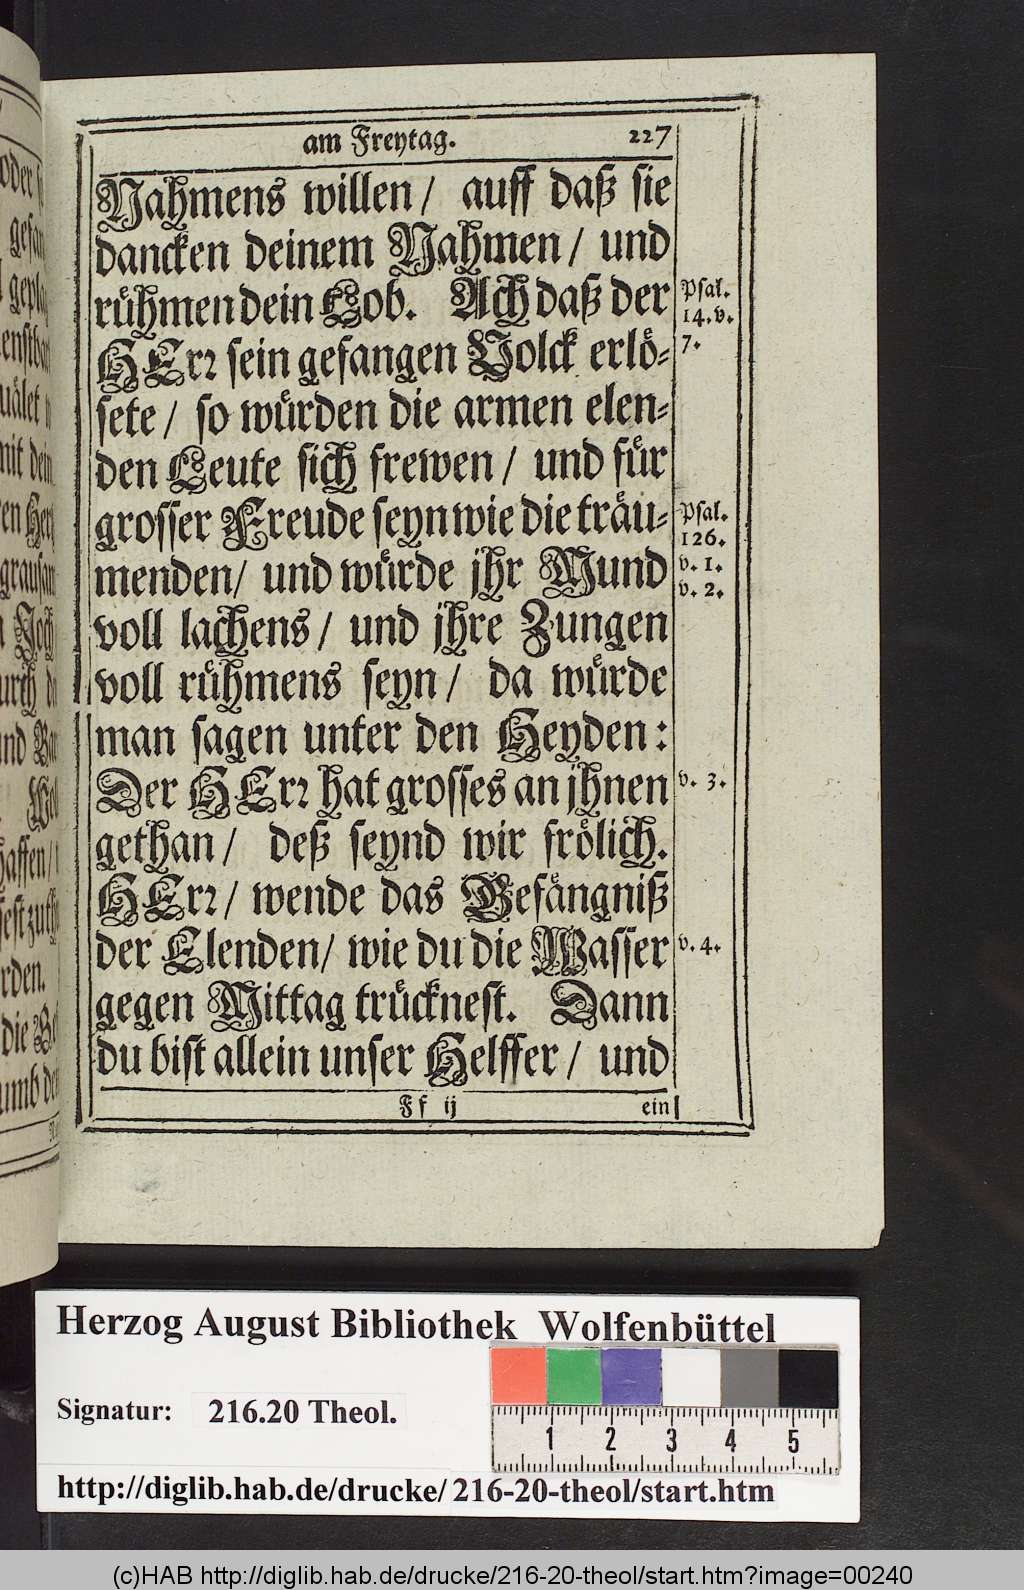 am Freytag. 227
Nahmens willen / auff daß sie
dancken deinem Nahmen / und
rühmen dein Lob. Ach daß der
HErr sein gefangen Volck erlö-
sete / so würden die armen elen-
den Leute sich frewen / und für
grosser Freude seyn wie die träu-
menden / und würde jhr Mund
voll lachens / und jhre Zungen
voll rühmens seyn / da würde
man sagen unter den Heyden:
Der HErr hat grosses an jhnen
gethan / deß seynd wir frölich.
HErr / wende das Gefängniß
der Elenden / wie du die Wasser
gegen Mittag trücknest. Dann
du bist allein unser Helffer / und
Ff ij ein
Psal.
14. v.
7.
Psal.
126.
v. 1.
v. 2.
v. 3.
v. 4.
oder
Joch
rden.
die
umb
Herzog August Bibliothek Wolfenbüttel
Signatur: 216.20 Theol.
1 2 3 4 5
http://diglib.hab.de/drucke/216-20-theol/start.htm
(c)HAB http://diglib.hab.de/drucke/216-20-theol/start.htm?image=00240